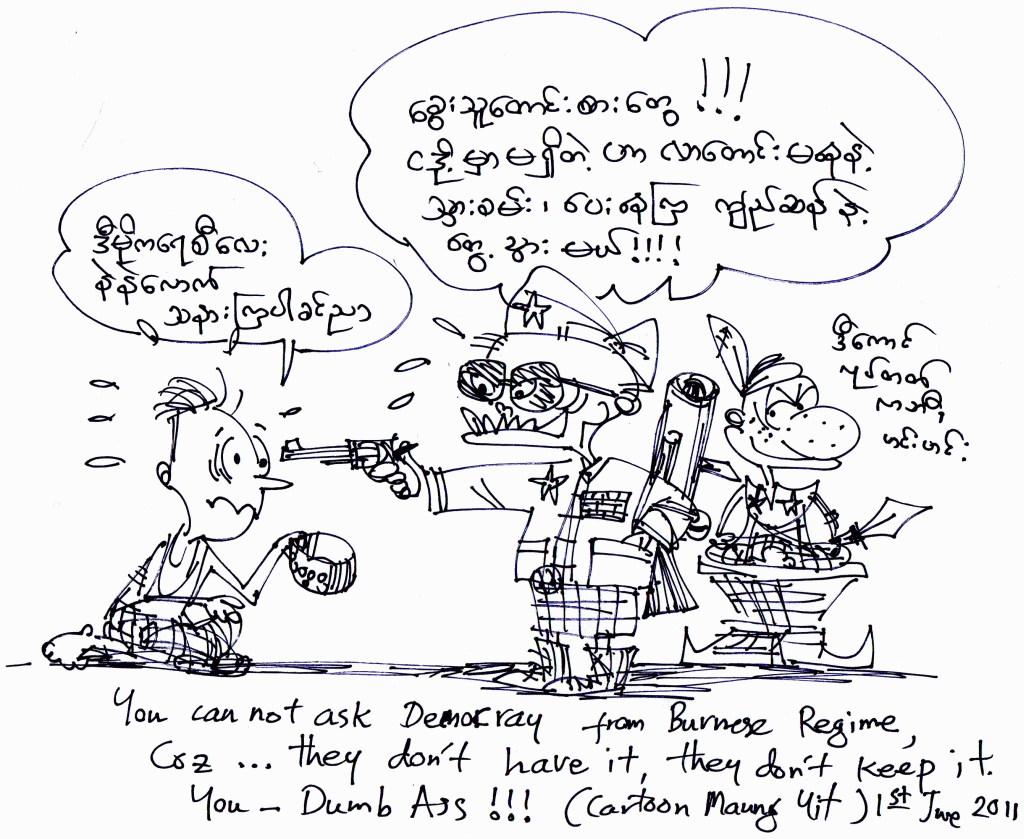 ဒီမိုကရေစီလေး
နဲနဲလောက်
သနားကြပါခင်ညာ
ခွေးသူတောင်းစားတွေ !!!
ငါဒို့မှာမရှိတဲ့ ဟာ လာတောင်းမနေနဲ့
သွားစမ်း၊ ပေးနေကြ ကျည်ဆန်နဲ့
တွေ့သွားမယ်!!!!
ဒီကောင်
ဟင်းဟင်း
You can not ask Democray from Burnese Regime,
Coz ... they don't have it, they don't keep it.
You - Dumb Ass !!! (Cartoon Maung Yit) 1st June 2011